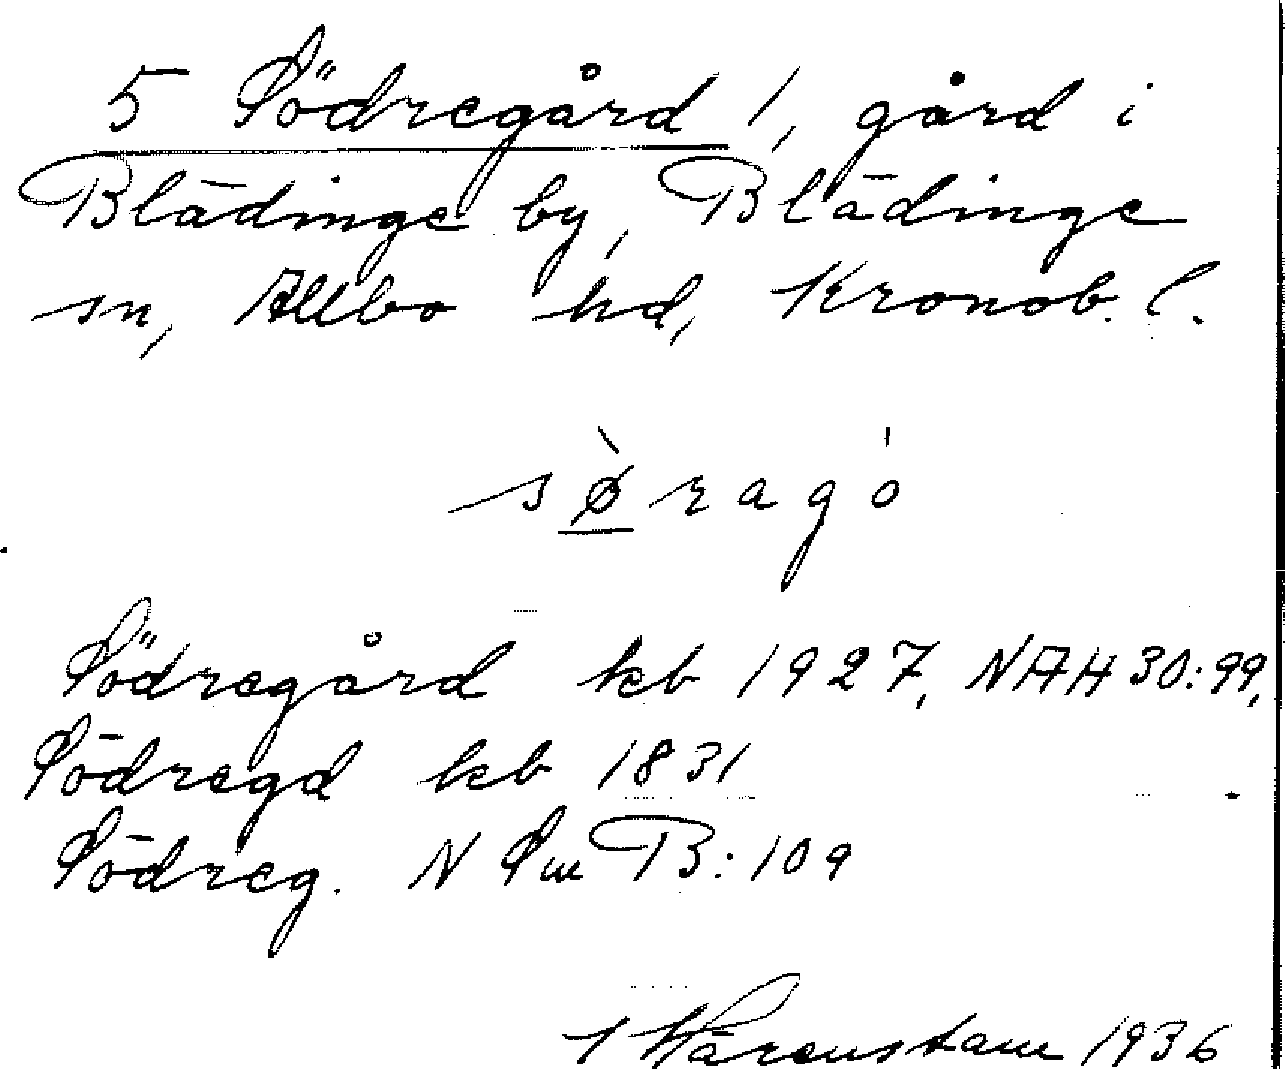 5 Södregård 1, gård i
Blädinge by, Blädinge
sn, Allbo hd, Kronob. l.
sø̀ragó
Södregård kb 1927, NAH 30:99,
Södregd kb 1831
Södreg. N Sm B:109
Wärenstam 1936